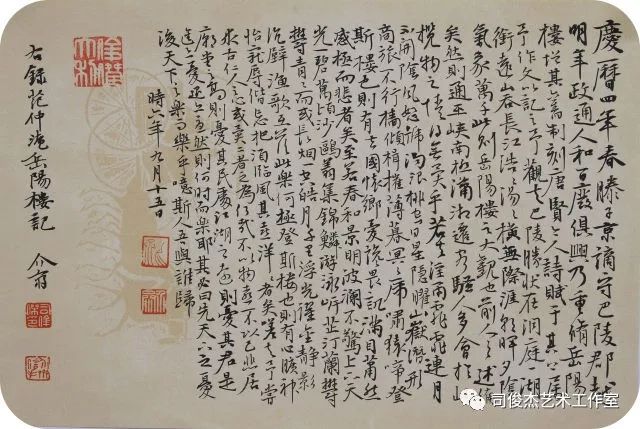 慶曆四年春滕子京謫守巴陵郡越
明年政通人和百廢俱興乃重脩岳陽
樓增其舊制刻唐賢今人詩賦于其上屬
予作文以記之予觀夫巴陵勝狀在洞庭一湖
銜遠山吞長江浩浩湯湯橫無際涯朝暉夕陰
氣象萬千此則岳陽樓之大觀也前人之述備
矣然則通巫峽南極瀟湘遷客騷人多會於此
攬物之情得無異乎若夫淫雨霏霏連月
不開陰風怒號濁浪排空日星隱曜山嶽潛形
商旅不行檣傾楫摧薄暮冥冥虎嘯猿啼登
斯樓也則有去國懷鄉憂讒畏譏滿目蕭然
感極而悲者矣至若春和景明波瀾不驚上下天
光一碧萬頃沙鷗翔集錦鱗游泳岸芷汀蘭鬱
鬱青青而或長煙一空皓月千里浮光躍金靜影
沉璧漁歌互答此樂何極登斯樓也則有心曠神
怡寵辱偕忘把酒臨風其喜洋洋者矣嗟夫予嘗
求古仁人之心或異二者之為何哉不以物喜不以己悲居
廟堂之高則憂其民處江湖之遠則憂其君是
進亦憂退亦憂然則何時而樂耶其必曰先天下之憂
後天下之樂而樂乎噫斯人吾與誰歸
時六年九月十五日
右錄范仲淹岳陽樓記 介翁
司俊杰艺术工作室